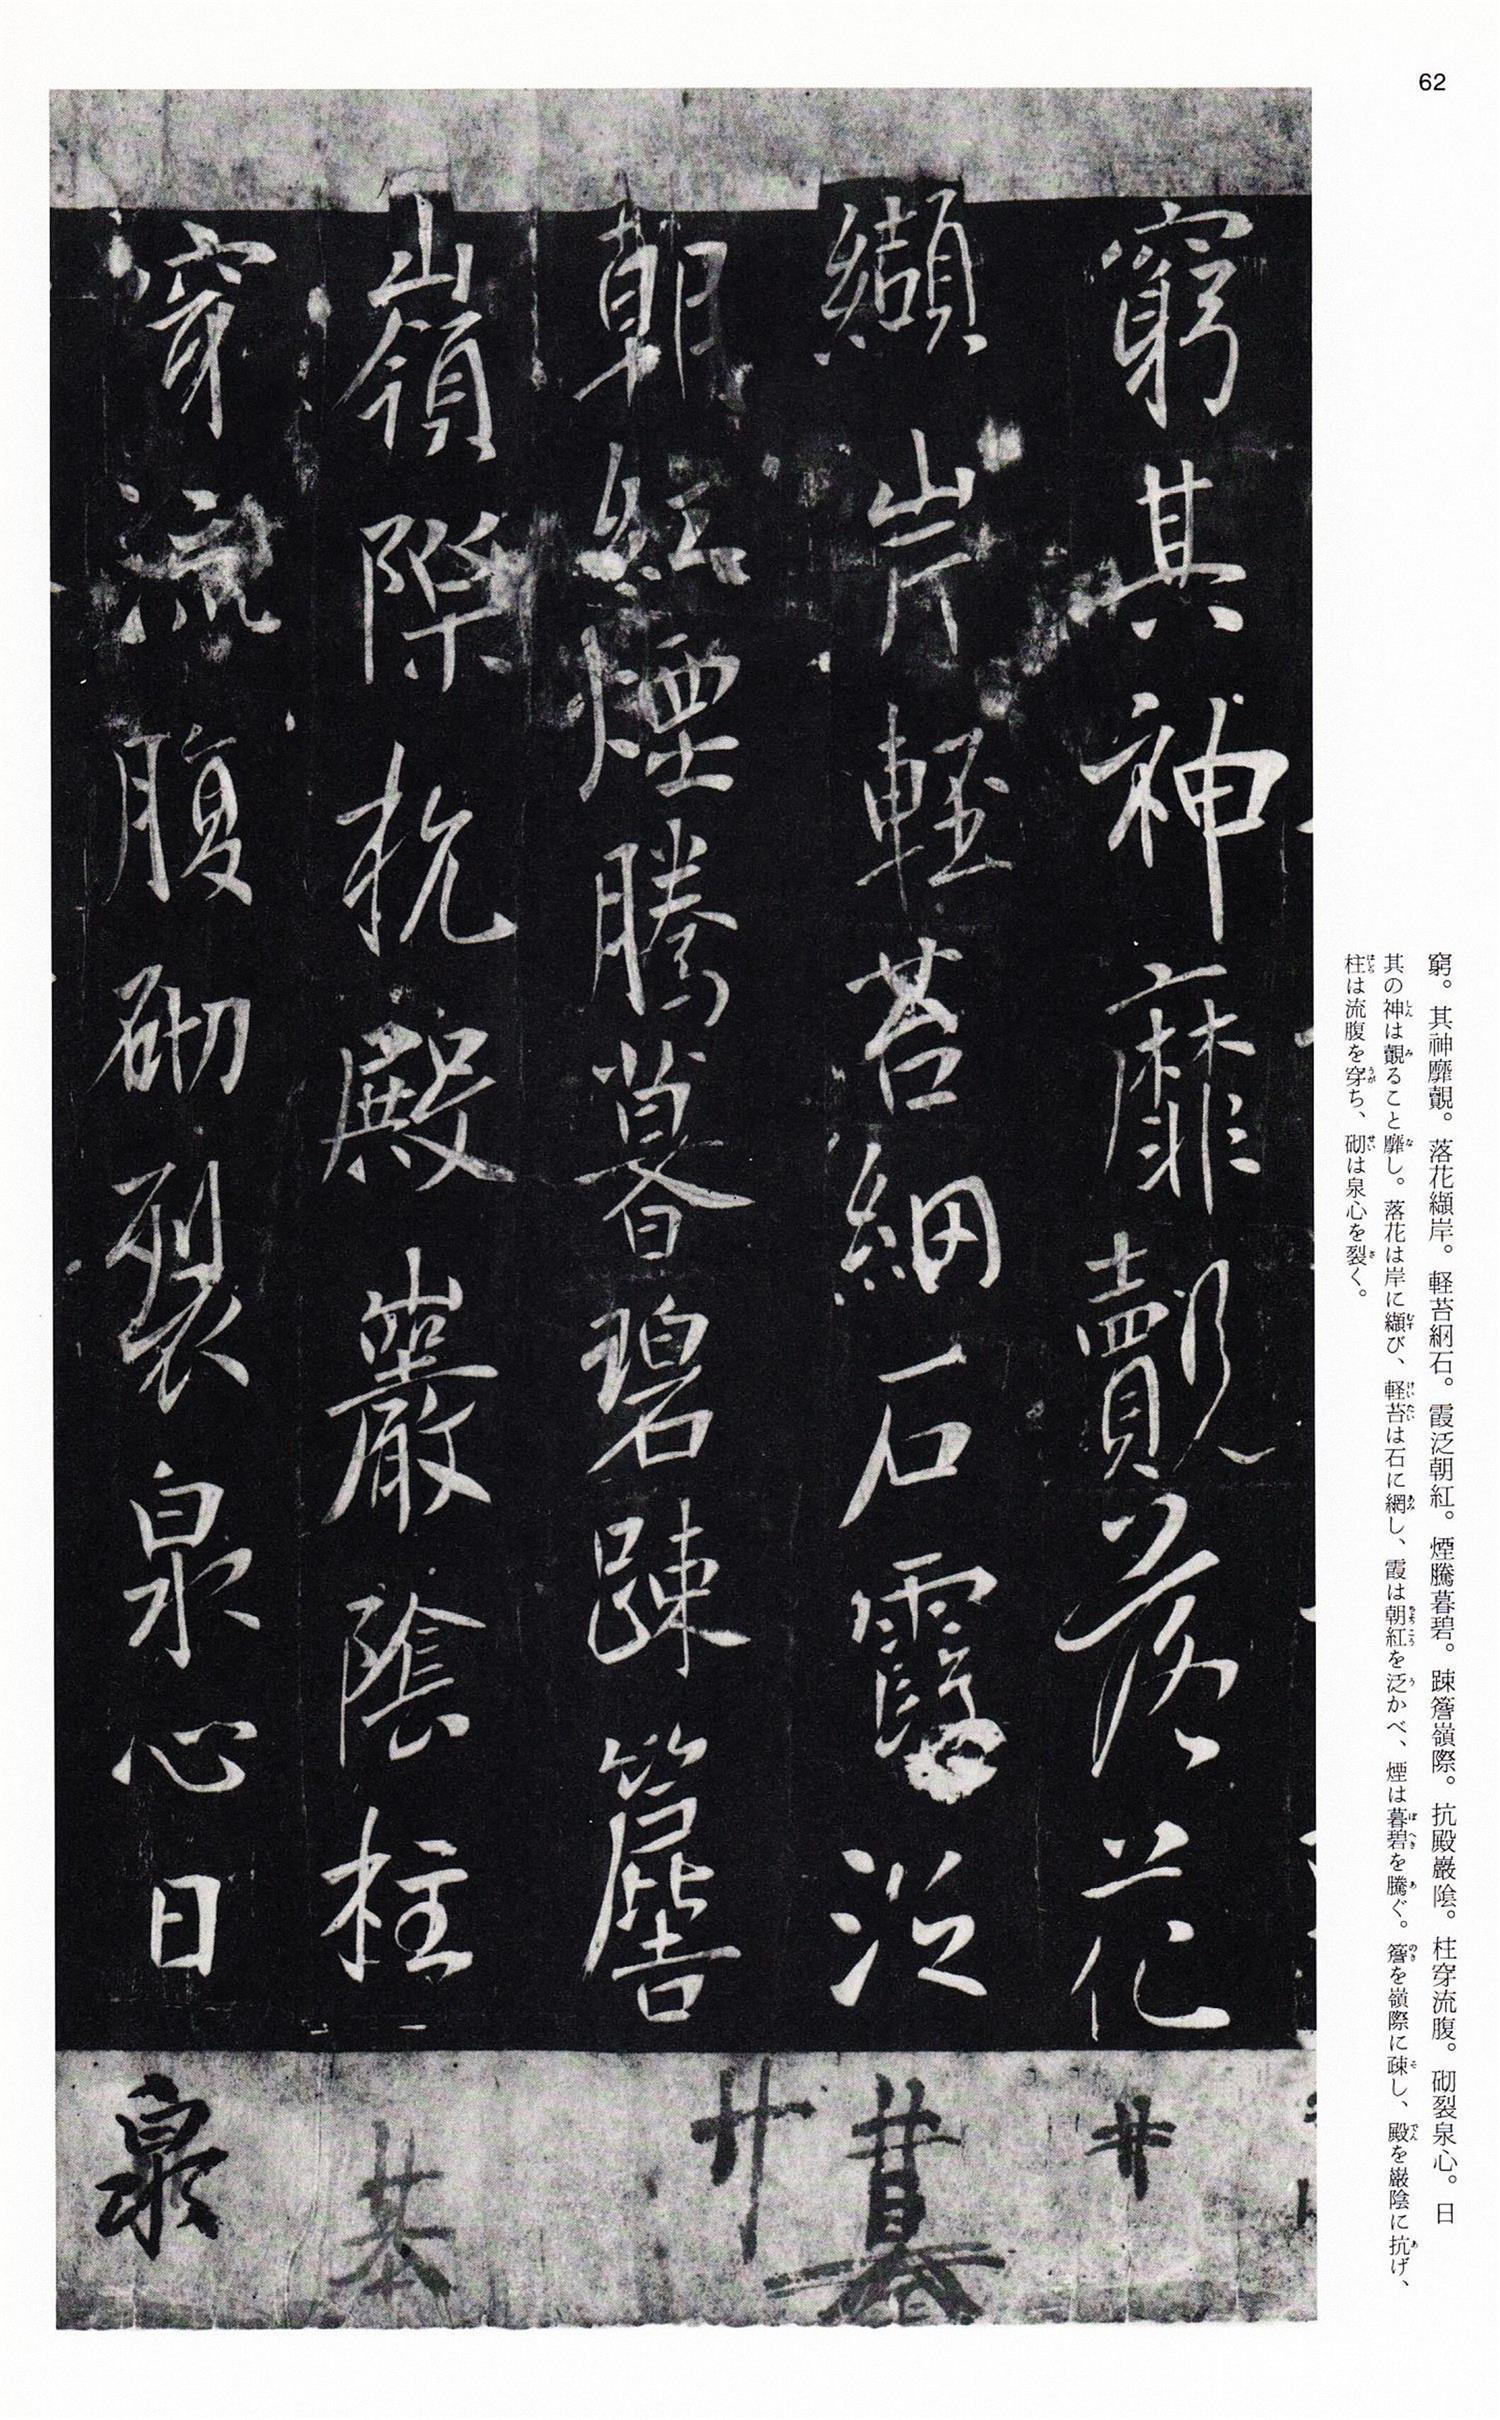 62
窮其神靡覿落花
纈岸軽苔細石霞泛
朝紅煙騰暮碧踈簷
嶺際抗殿巖陰柱
穿流腹砌裂泉心日
卄
暮
卄
泉
窮。其神靡覿。落花纈岸。軽苔網石。霞泛朝紅。煙騰暮碧。踈簷嶺際。抗殿巖陰。柱穿流腹。砌裂泉心。日
其の神は覿ること靡し。落花は岸に纈び、軽苔は石に網し、霞は朝紅を泛かべ、煙は暮碧を騰ぐ。簷を嶺際に疎し、殿を巌陰に抗げ、
柱は流腹を穿ち、砌は泉心を裂く。